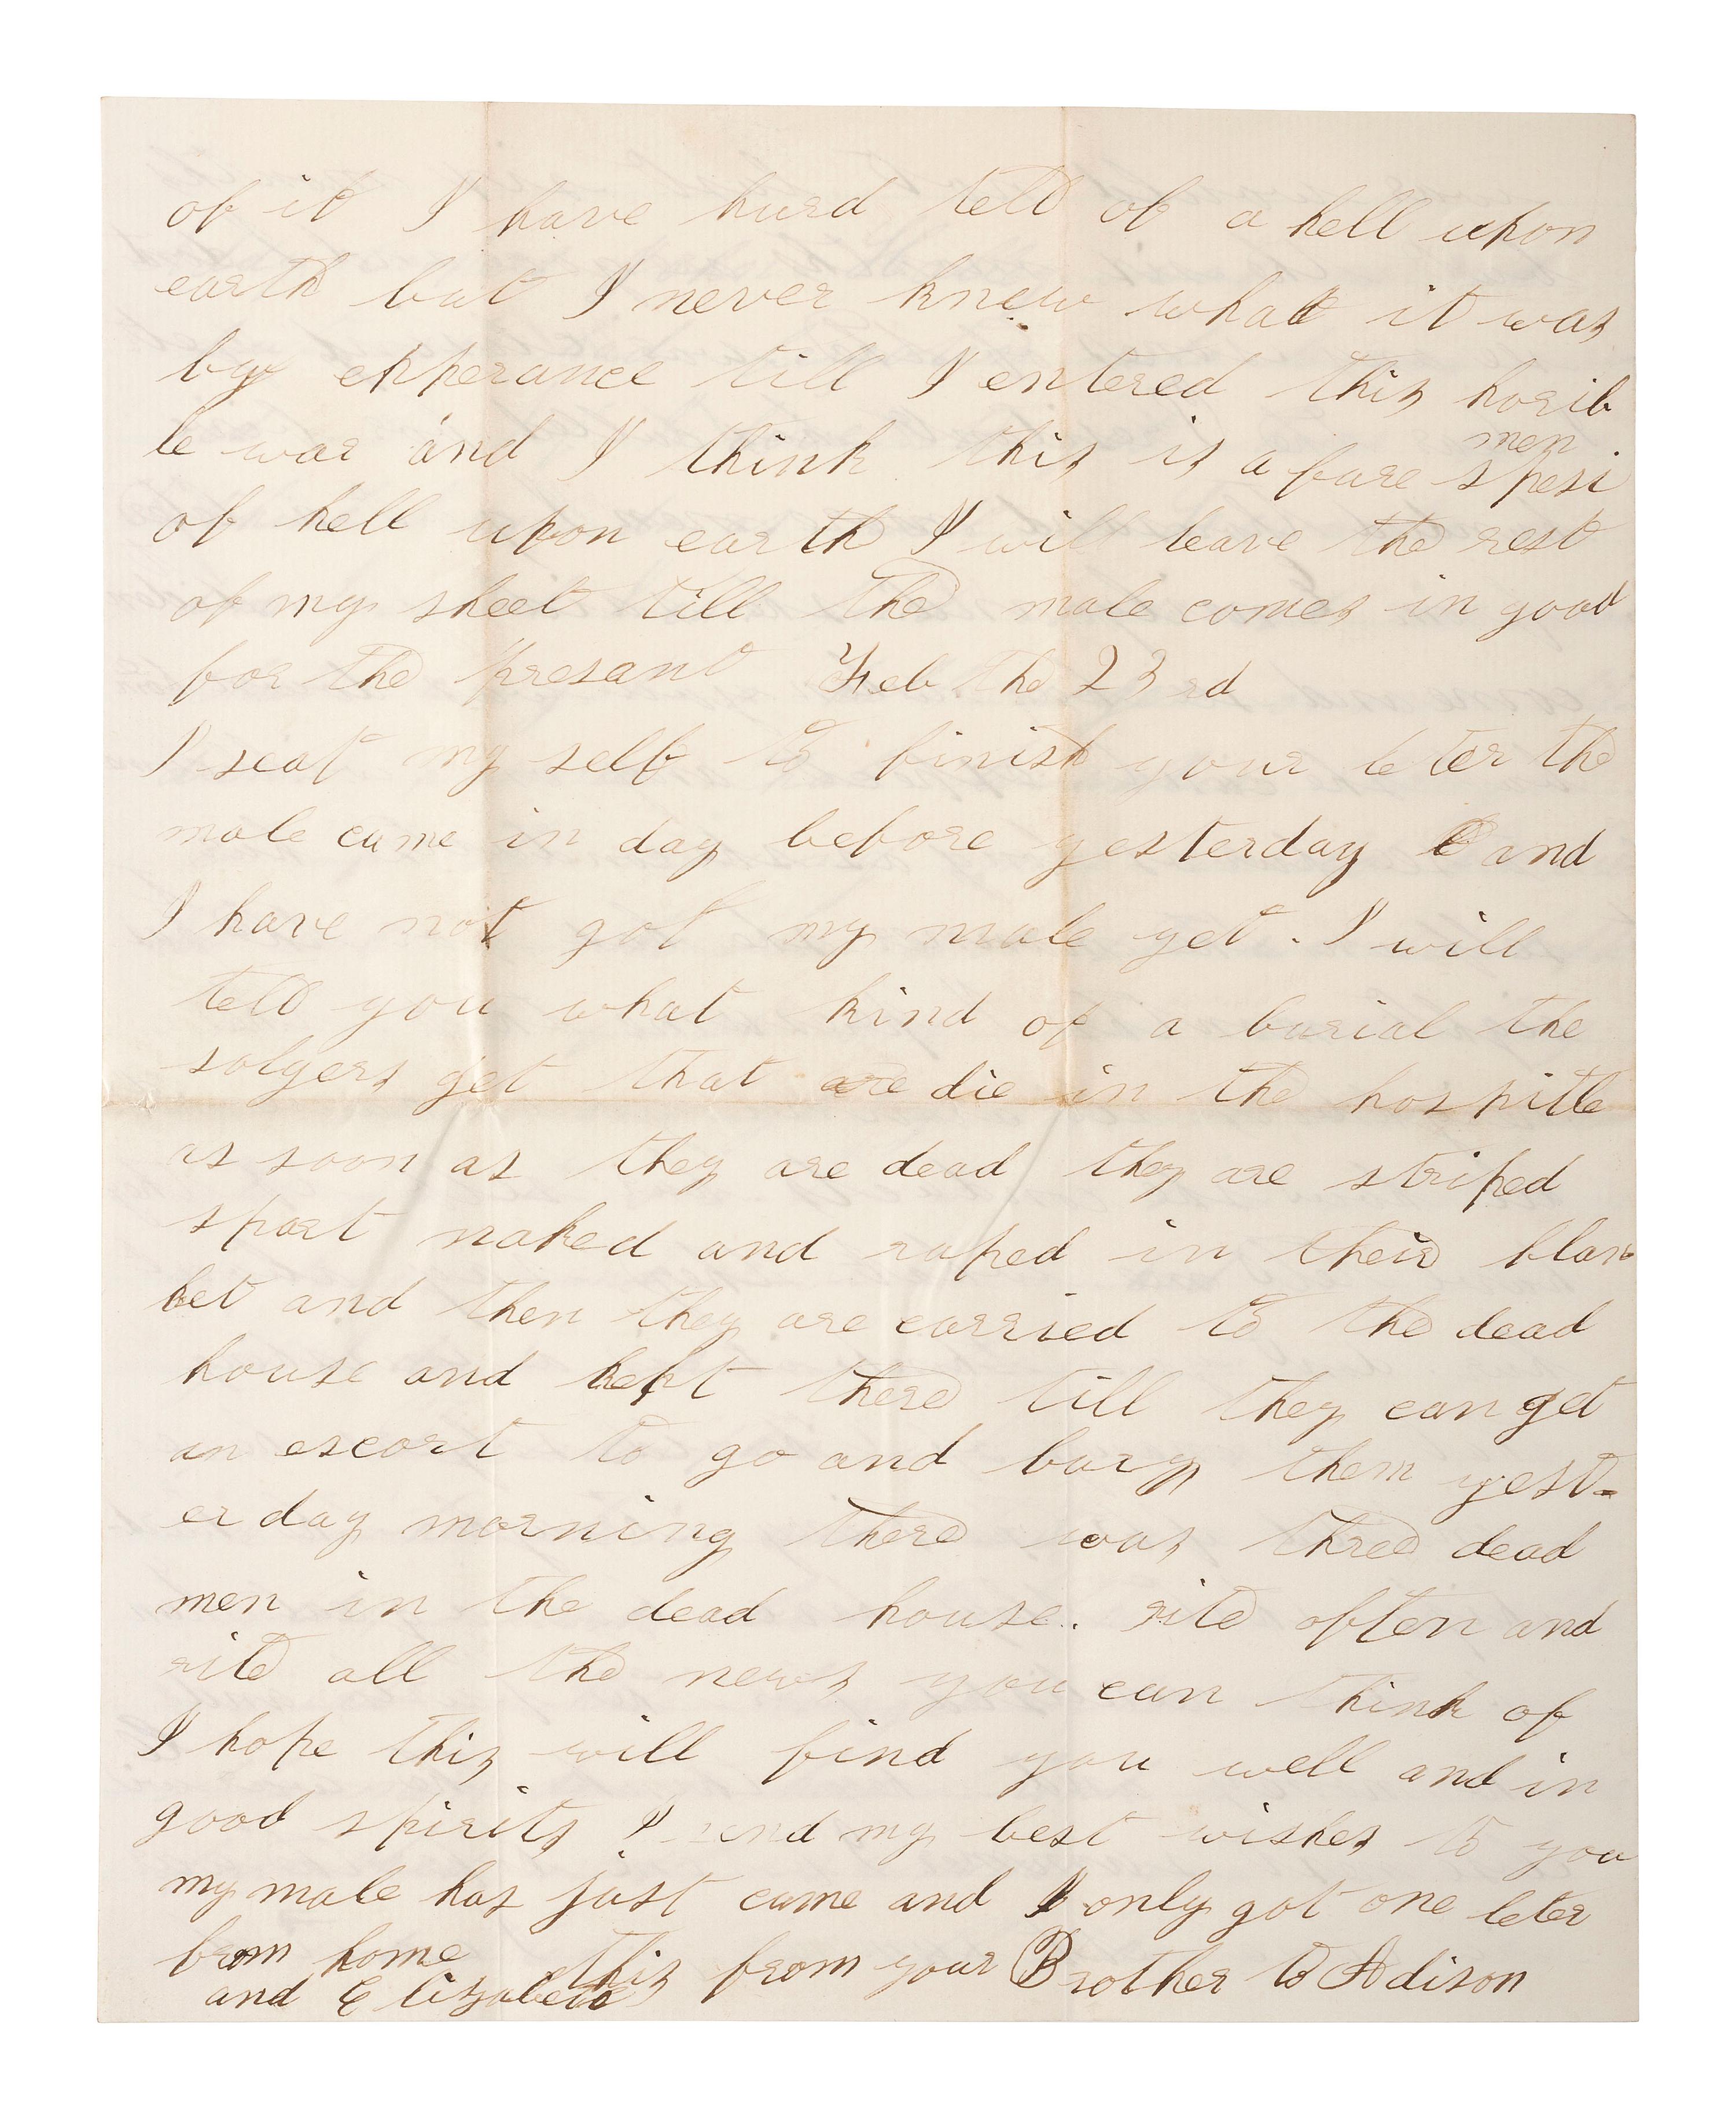 of it I have hurd tell of a hell upon
earth but I never knew what it was
by experance till I entered this horib
le war and I think this is a fare spesi
men
of hell upon earth I will leave the rest
of my sheet till the male comes in good
for the presant Feb the 23rd
I seat my self to finish your leter the
male came in day before yesterday and
I have not got my male yet. I will
tell you what kind of a burial the
solgers get that are die in the hospitle
as soon as they are dead they are striped
spart naked and raped in their blan
ket and then they are carried to the dead
house and kept there till they can get
an escort to go and bury them yest-
erday morning there was three dead
men in the dead house. rite often and
rite all the news you can think of
I hope this will find you well and in
good spirits I send my best wishes to you
my male has just came and I only got one leter
from home this from your Brother to Adison
and Elizabeth